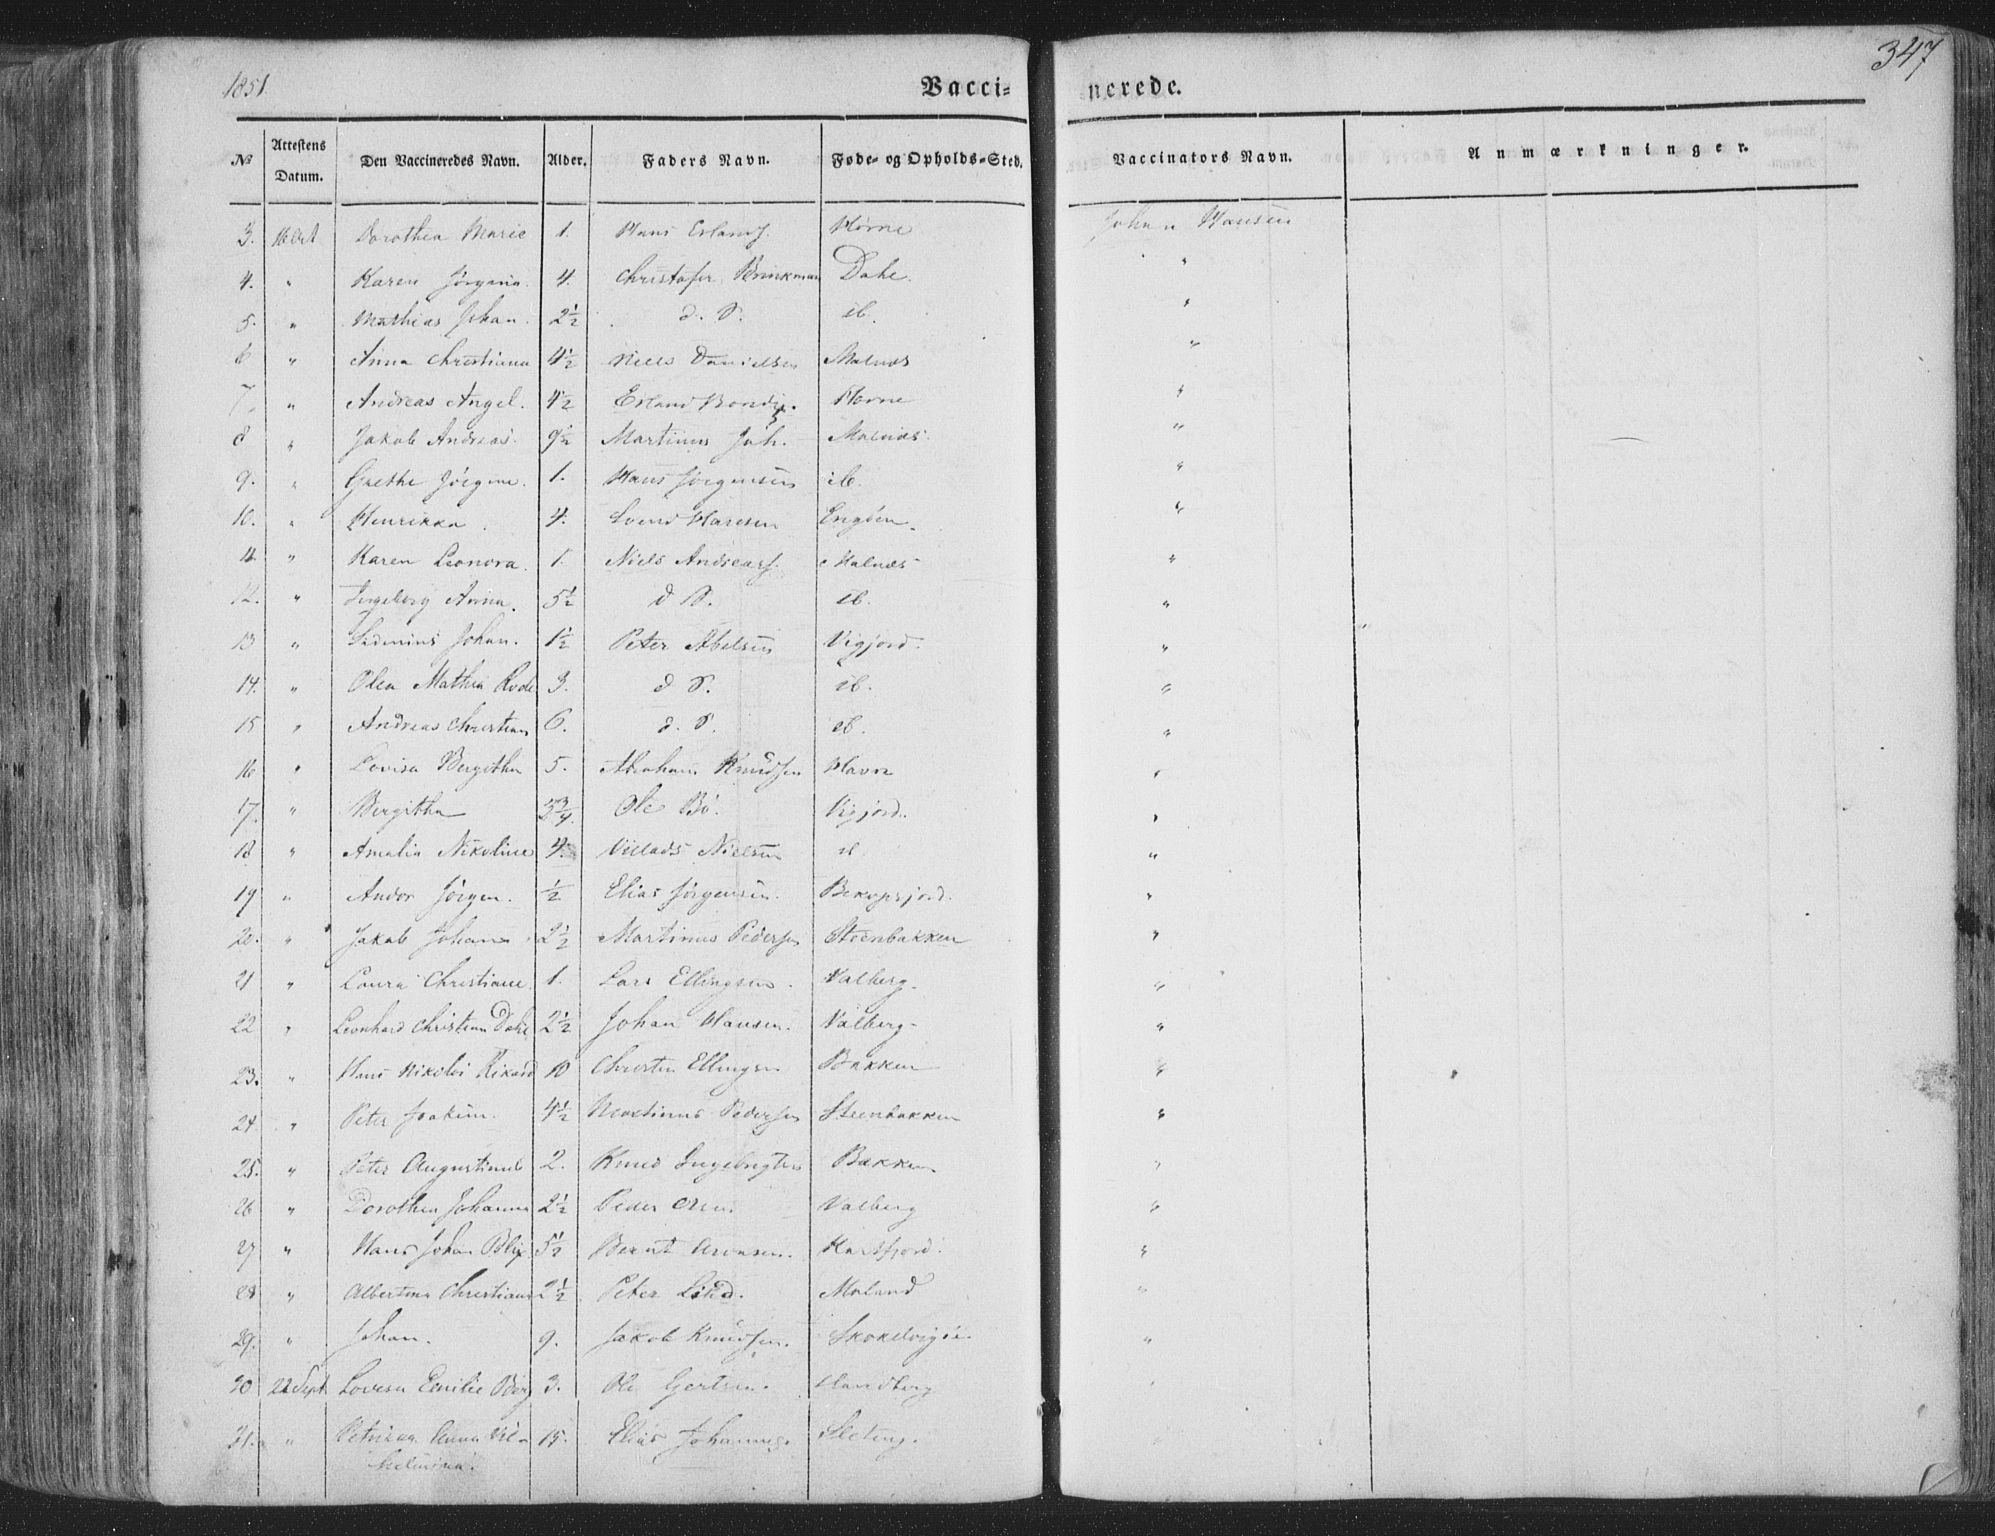 1851
Vaccinerede.
347
No Attestens Datum. Den Vaccineredes Navn. Alder. Faders Navn. Føde- og Opholds-Sted. Vaccinators Navn. Anmærkninger.
3. Dorothea Marie 1. Hans Erlands. Horne Johan Hansen
4. " Karen Jørgina. 4. Christofer Brinkman Dahe. "
5. " Mathias Johan. 2½ d. S. ib. "
6 " Anna Christiana 4½ Niels Danielsen Malnæs "
7. " Andreas Angel. 4½ Erland Bondes. Horne "
8 " Jakob Andreas. 9½ Martinus Joh. Malnæs. "
9. " Grethe Jørgine. 1. Hans Jørgensen ib. "
10. " Henrikka. 4. Svend Hansen Engøen. "
11. " Karen Leonora. 1. Niels Andreass. Malnæs "
12. " Ingeborg Anna. 5½ d S. ib. "
13 " Johan. 1½ Peter Abelsen Vigjord. "
14. " Olea Mathea 3. d S. ib. "
15 " Andreas Christian 6. d. S. ib. "
16 " Lovisa Bergitha 5. Abraham Knudsen Havn "
17. " Bergitha Ole Bö. Vigjord. "
18 " Amalia Nikoline 4. Villads Nielsen ib "
19 " Andor Jörgen. ½ Elias Jörgensen. "
20. " Jakob Johan 2½ Martinus Pedersen Steenbakken "
21 " Laura Christiane 1. Lars Ellingsen. Valberg. "
22 " Leonhard Christian Dahl 2½ Johan Hansen. Valberg. "
23. " Hans Nikolai Rikard 10 Christen Ellingsen Bakken "
24. " Peter Joakim. 4½ Martinus Pedersen Steenbakken "
25. " Peter Augustinus 2. Knud Ingebrigtsen Bakken "
26 " Dorothea Johanna 2½ Peder Valberg "
27 " Hans Johan Blix 5½ Bernt Aronsen. "
28 " Albertina Christiana 2½ Peter Lind. Moland "
29. " Johan. 9. Jakob Knudsen. "
30 22 Sept Lovisa Emilie Berg 3. Ole Gertsen. Sandberg
31. " Petrikka Anna Vil- 15. Elias Johannes. Sleting.
helmina.